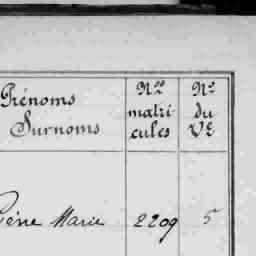 Prénoms
Surnoms
Nos
matri-
cules
No
du
Ve
Marie 2209 5